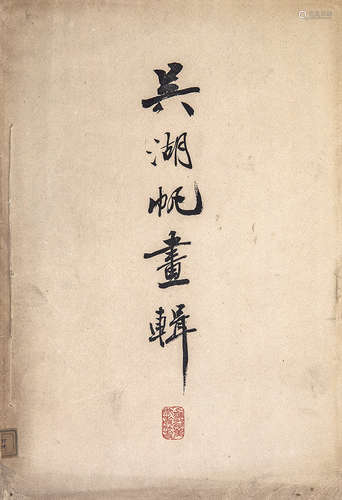 吴湖帆畫輯